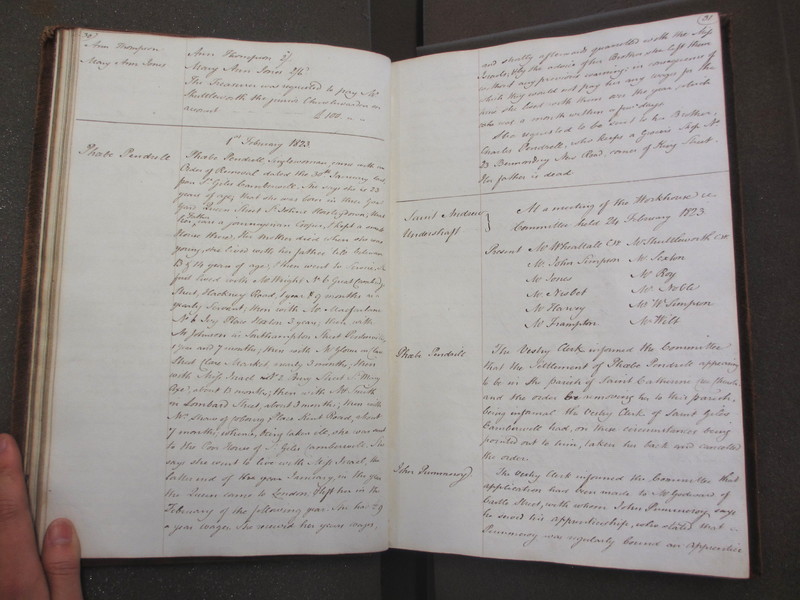 30
Ann Thompson
Mary Ann Jones
Ann Thompson 2/
Mary Ann Jones 2/6
The Treasurer was requested to pay Mr
Shuttleworth the junior Churchwarden on
account £100 " "
1st February 1823
Phoebe Pendrill
Phoebe Pendrill, Singlewoman, came with an
Order of Removal dated the 30th January last
from St Giles Camberwell. She says she is 23
years of age; that she was born in three
Yard Queen Street St Johns Horsleydown; that
her Father, was a journeyman Cooper, & kept a small
House there. Her mother died when she was
young; she lived with her father till between
13 & 14 years of age; then went to Service,
first lived with Mr Wright No 6 Great Cambridge
Street, Hackney Road, 1 year & 9 months a
yearly Servant; then with Mr Macfarlane
No 6 Ivy Place Hoxton 3 years; then with
Mr Johnson in Southampton Street
1 year and 7 months; then with Mr Glenn in Clare
Street Clare Market nearly 3 months; then
with Miss Israel No 2 Bury Street St Mary
Axe, about 13 months; then with Mr Smith
in Lombard Street, about 3 months; then with
Mr Shaw of Place Kent Road, about
7 months, where, being taken ill, she was sent
to the Poor House of St Giles Camberwell. She
says she went to live with Miss Israel, the
latter end of the year January, in the year
the Queen came to London, & left her in the
February of the following year. She had £9
a year wages. She received her years wages,
31
and shortly afterwards quarrelled with the Miss
Israels, & by the advice of her Brother she left them
without any previous warning; in consequence of
which they would not pay her any wages for the
time she lived with them over the year, which
was not a month within a few days.
She requested to be sent to her Brother,
Charles Pendrill, who keeps a Green Shop No
33 Bermondsey New Road, corner of King Street.
Her father is dead
Saint Andrew
Undershaft
At a meeting of the Workhouse
Committee held 24 February 1823.
Present Mr Wheallate CW Mr Shuttleworth CW
Mr John Simpson Mr Sexton
Mr Jones Mr Roy
Mr Nisbet Mr Noble
Mr Harvey Mr Wm Simpson
Mr Frampton Mr Wilt
Phoebe Pendrill
The Vestry Clerk informed the Committee
that the Settlement of Phoebe Pendrill appearing
to be in the parish of Saint Catherine Cree Church
and the order for removing her to this parish,
being informal the Vestry Clerk of Saint Giles
Camberwell had, on these circumstances being
pointed out to him, taken her back and cancelled
the order.
John Pummeroy
The Vestry Clerk informed the Committee that
application had been made to Mr of
Castle Street, with whom John Pummeroy, says
he served his apprenticeship, who stated that
Pummeroy was regularly bound an apprentice